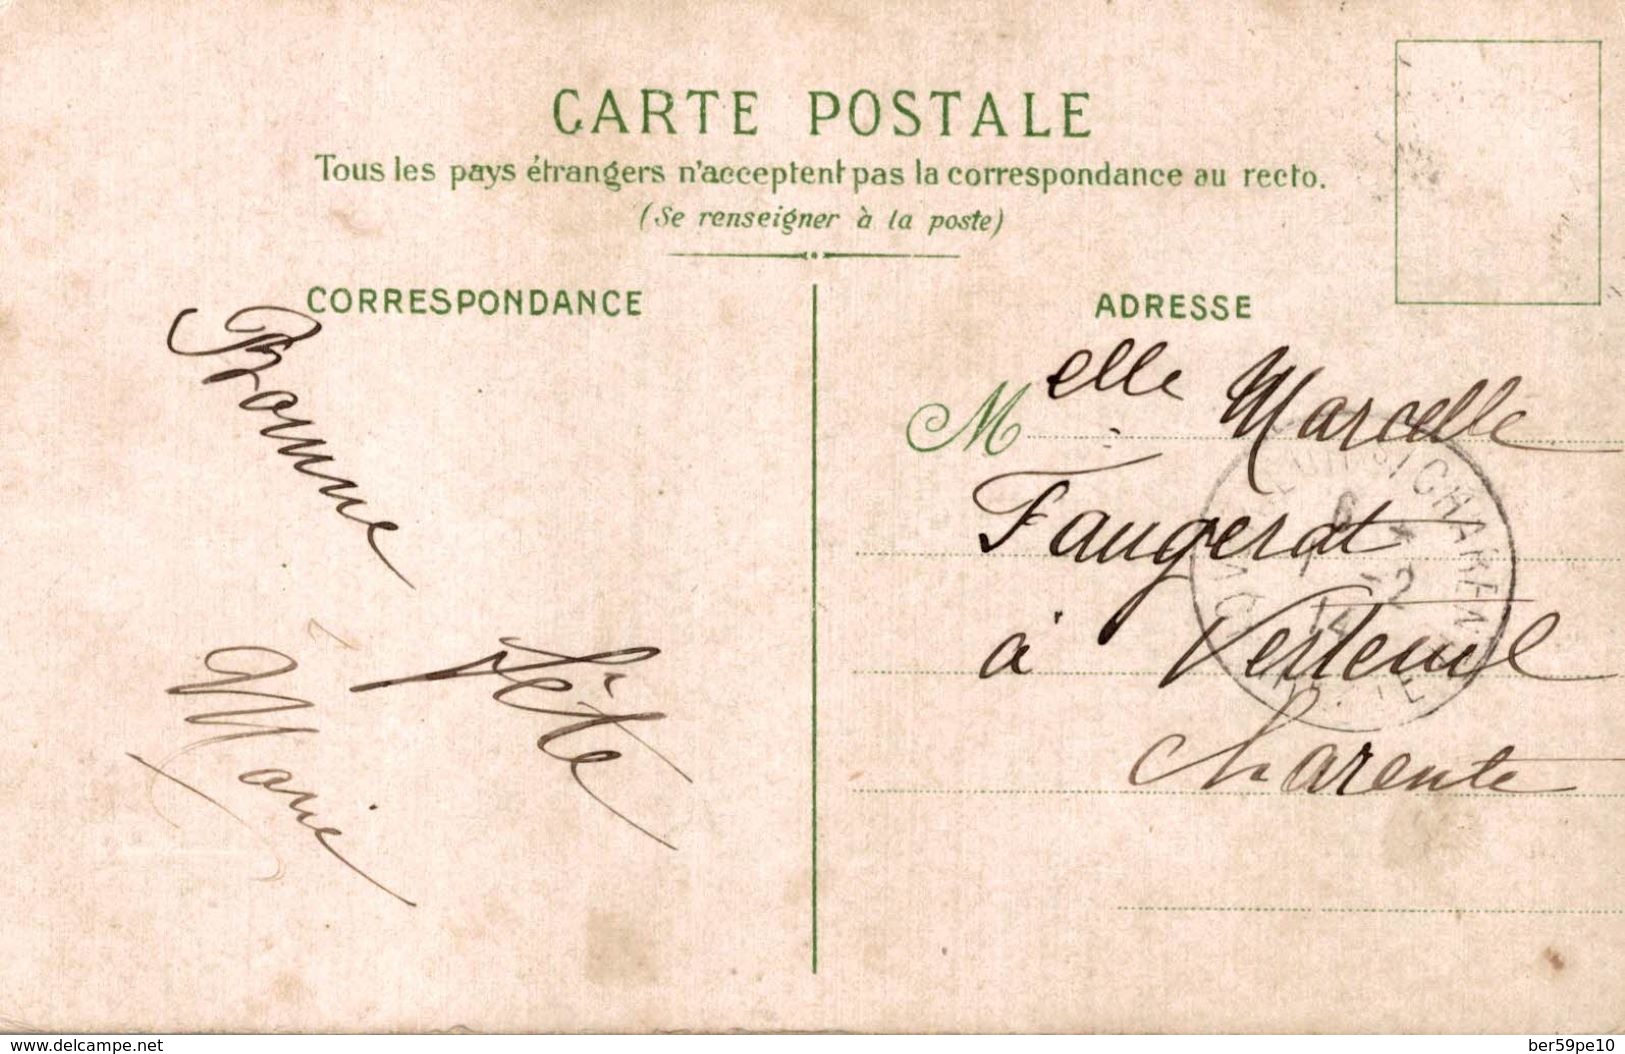 CARTE POSTALE
Tous les pays étrangers n'acceptent pas la correspondance au recto.
(Se renseigner à la poste)
CORRESPONDANCE
Bonne
Fête
Marie
ADRESSE
Melle Marcelle
Faugerat
à Verteuil
Charente
www.delcampe.net
ber59pe10